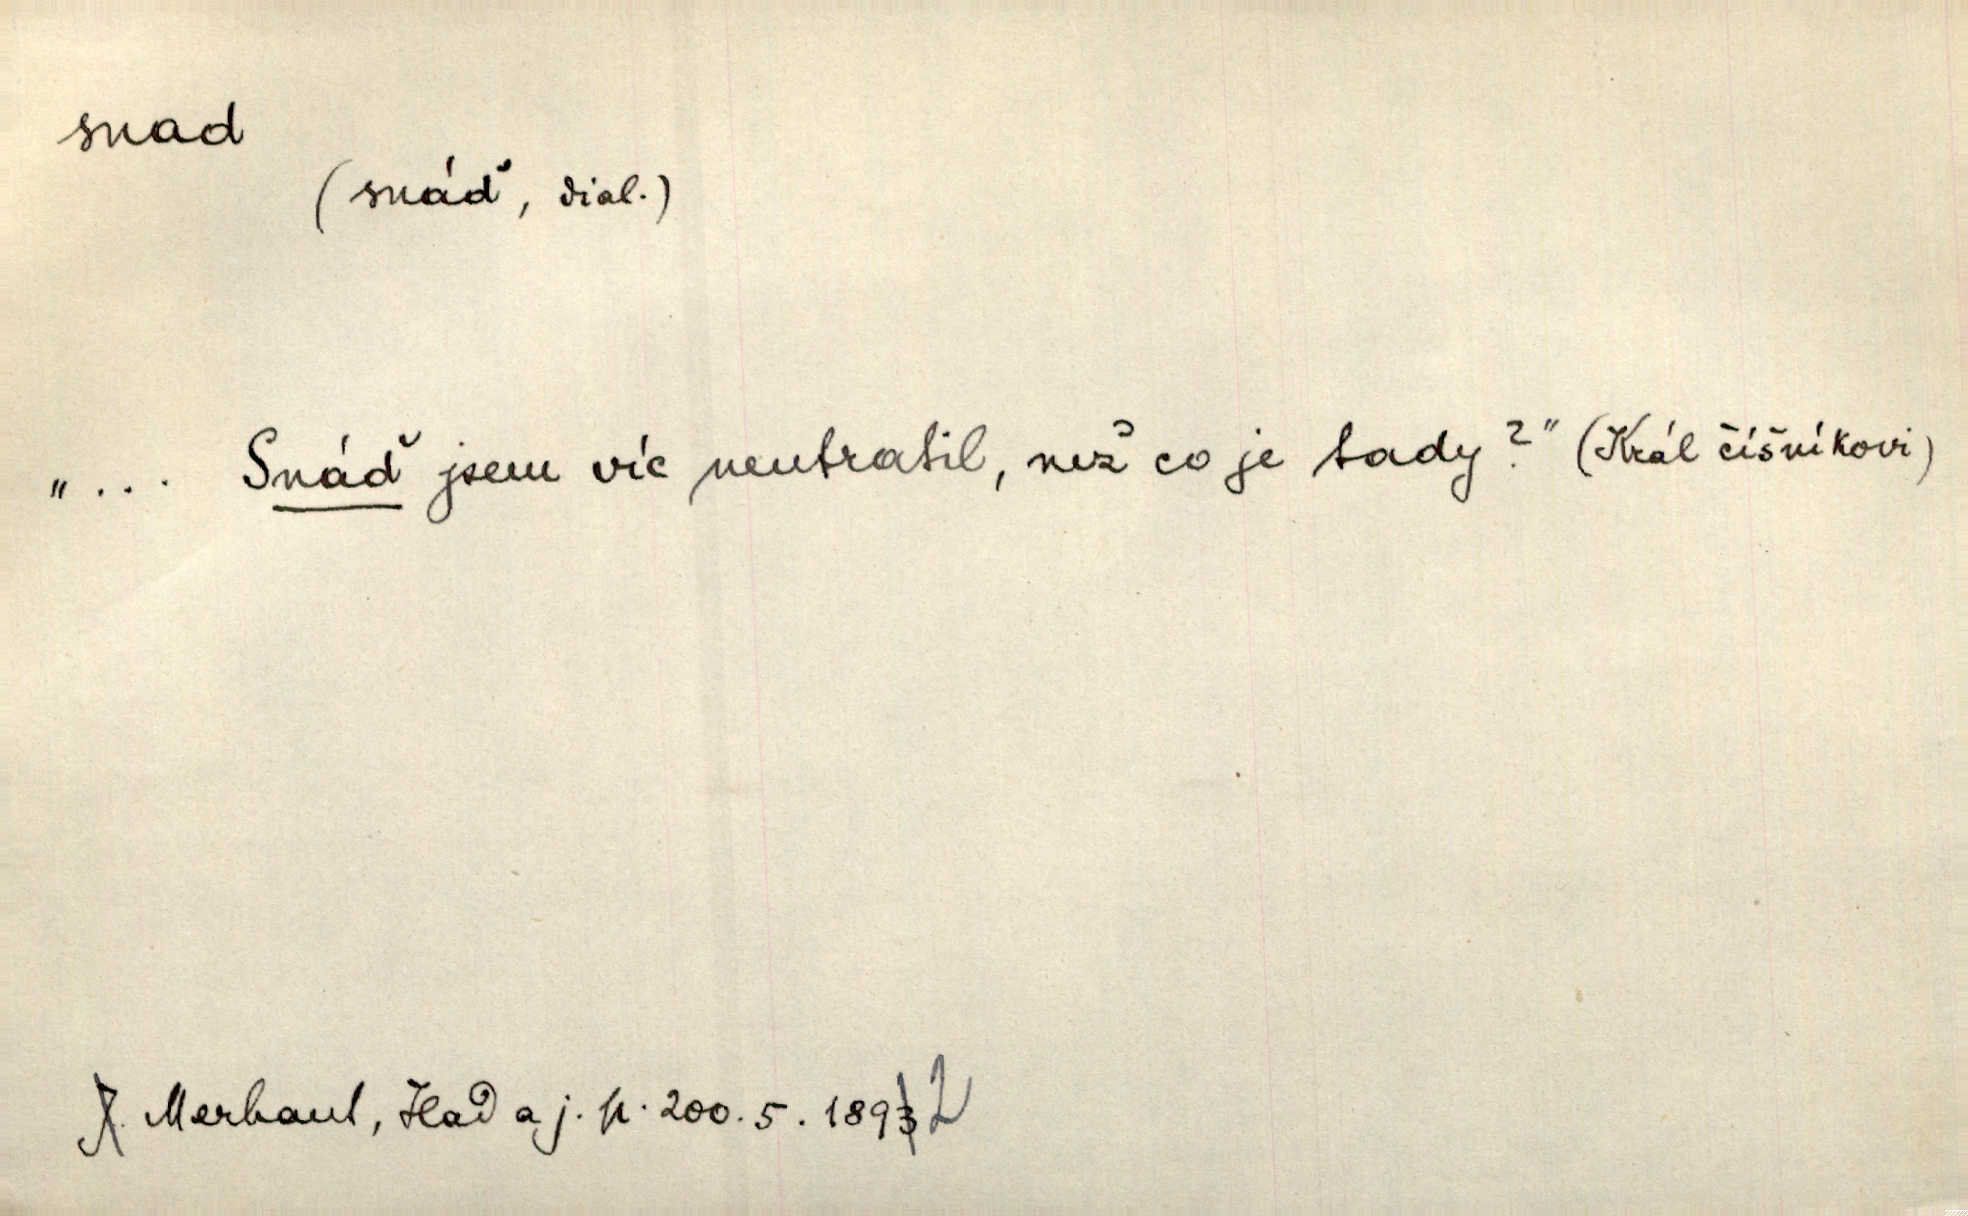 snad
(snáď, dial.)
„... Snáď jsem víc neutratil, než co je tady?" (Král číšníkovi)
J. Merhaut, Had a j. p. 200. 5. 1893 2